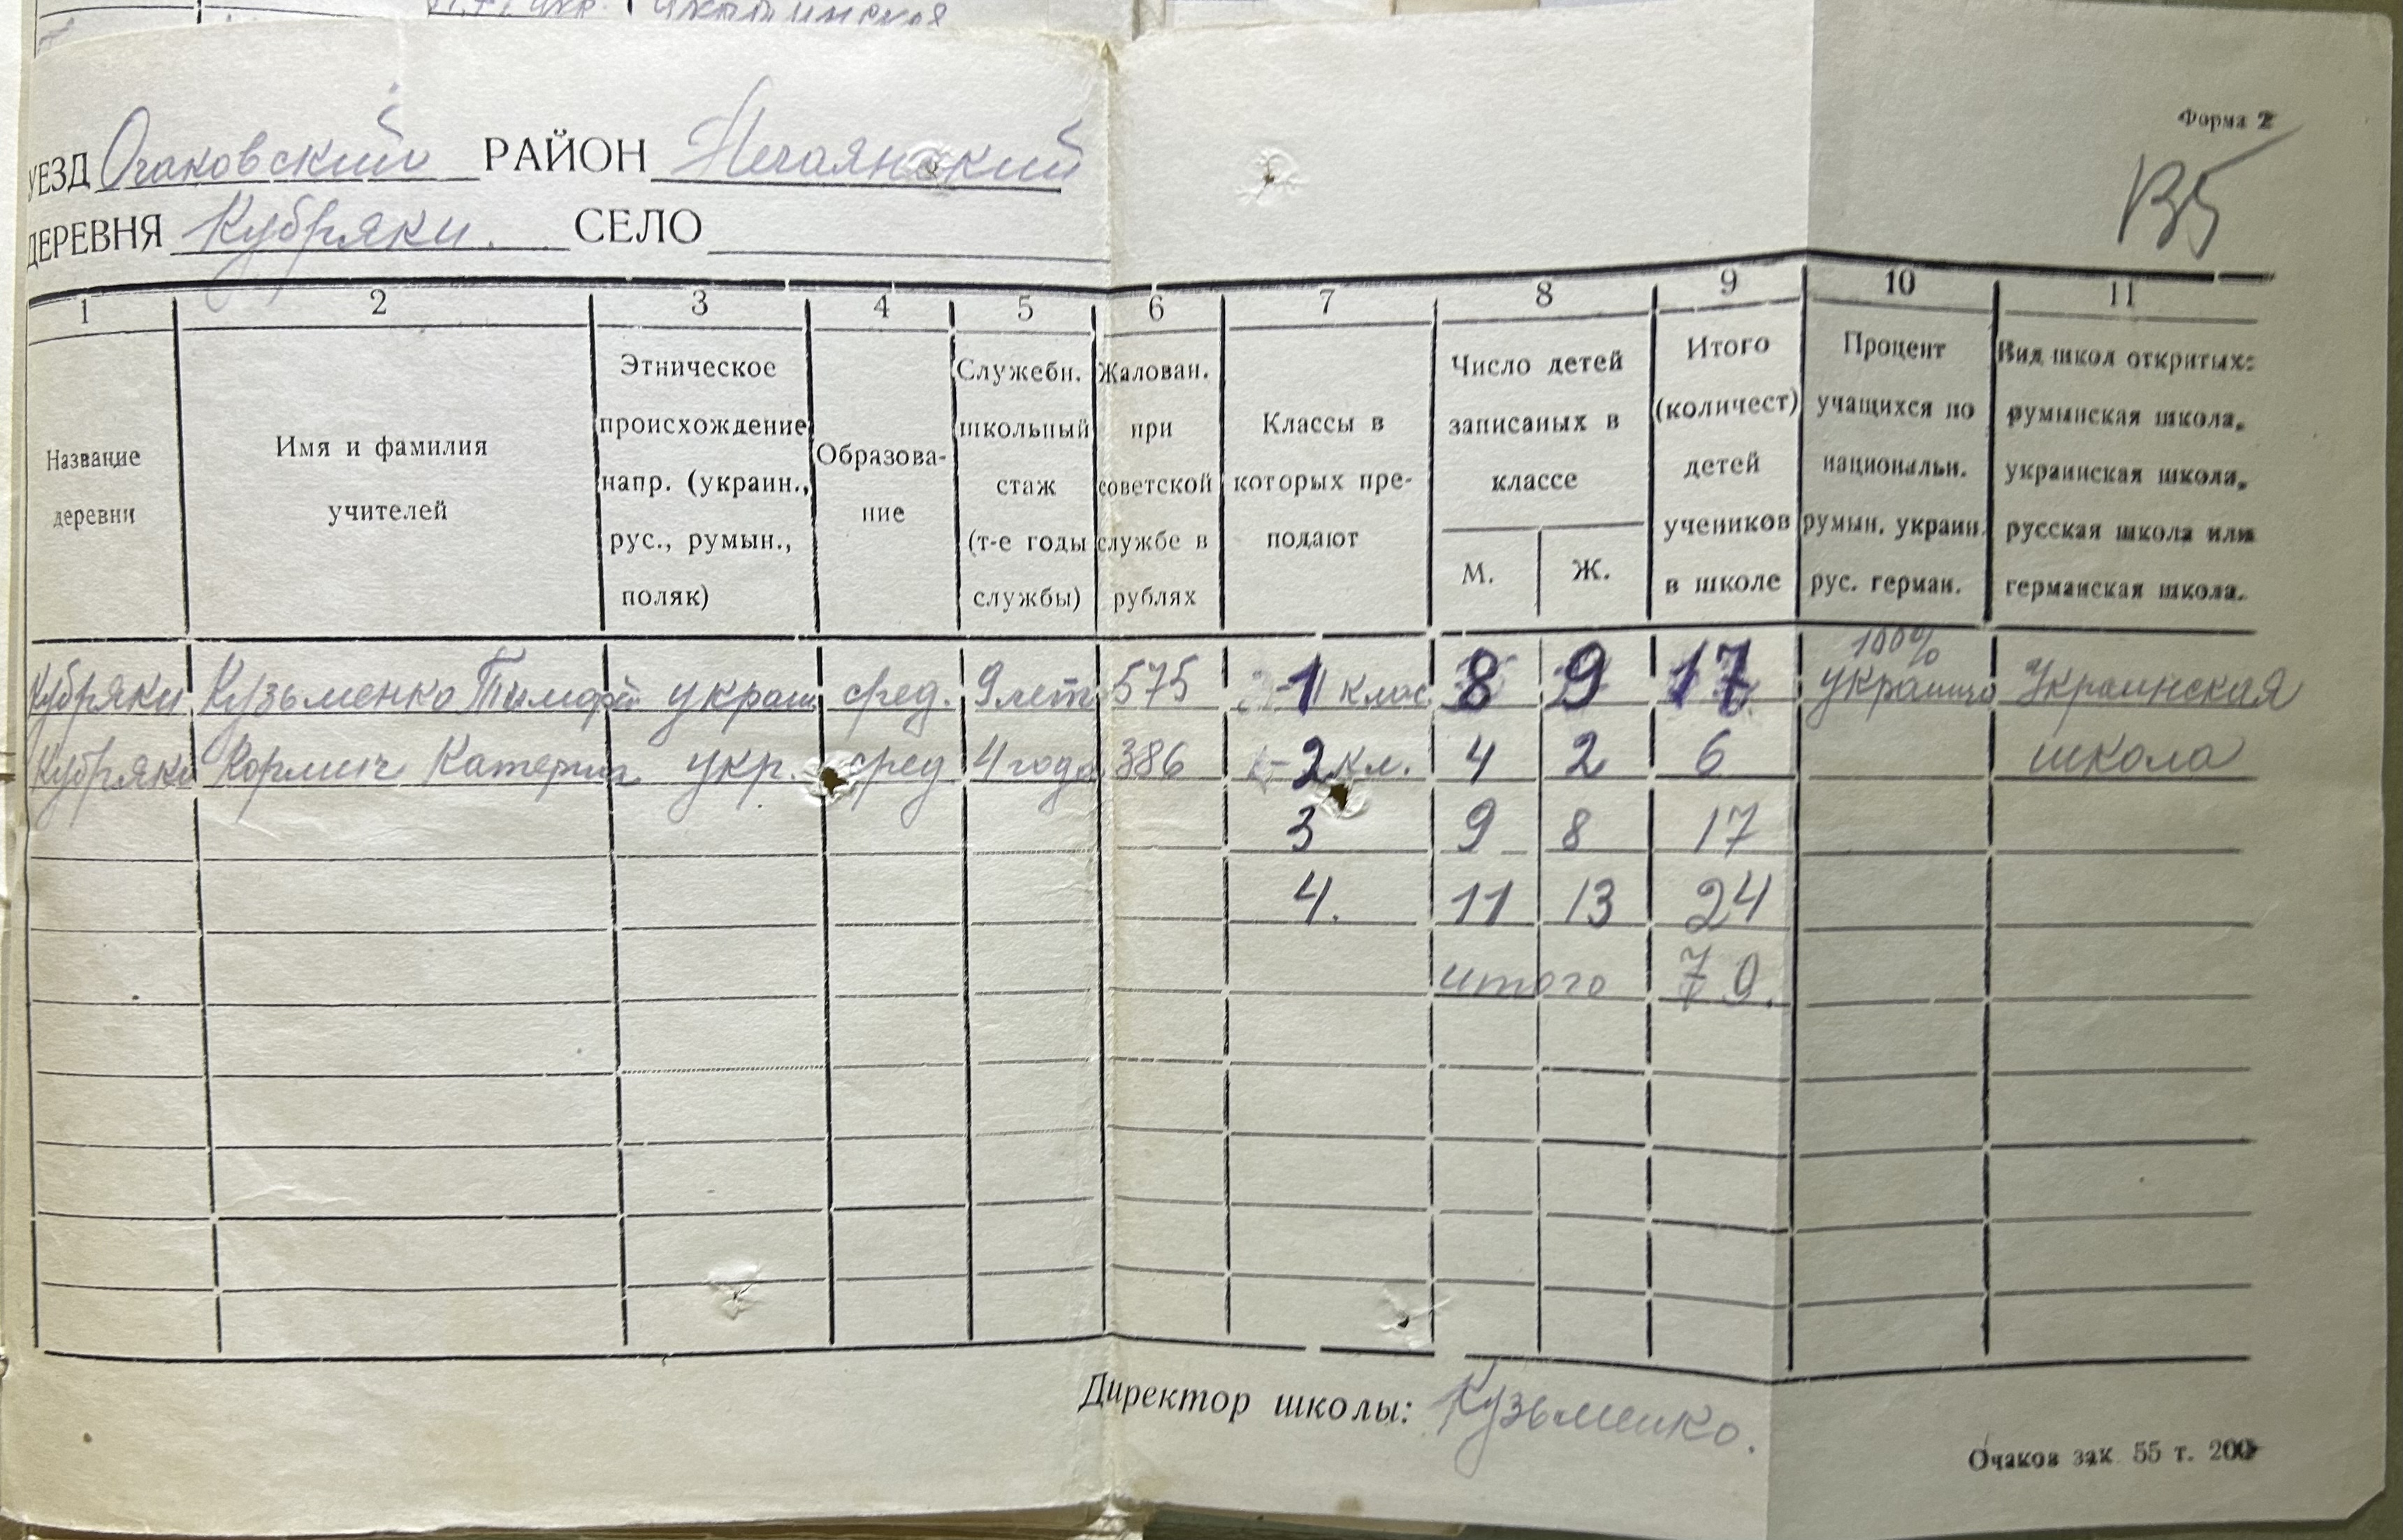 Форма 2
УЕЗД Очаковский РАЙОН Нечаянский
ДЕРЕВНЯ Кубряки. СЕЛО
1 2 3 4 5 6 7 8 9 10 11
Название деревни
Имя и фамилия учителей
Этническое происхождение напр. (украин., рус., румын., поляк)
Образова-ние
Служебн. школьный стаж (т-е годы службы)
Жалован. при советской службе в рублях
Классы в которых пре-подают
Число детей записаных в классе
М. Ж.
Итого (количест) детей учеников в школе
Процент учащихся по национальн. румын. украин. рус. герман.
Вид школ открытых: румынская школа, украинская школа, русская школа или германская школа.
100%
Кубряки Кузьменко Тимофе украин сред. 9 лет 575 1 клас 8 9 17 Украинская
Кубряки Кормич Катерина укр. сред 4 года 386 2 кл. 4 2 6 школа
3 9 8 17
4. 11 13 24
итого 70.
Директор школы: Кузьменко.
Очаков зак 55 т. 200